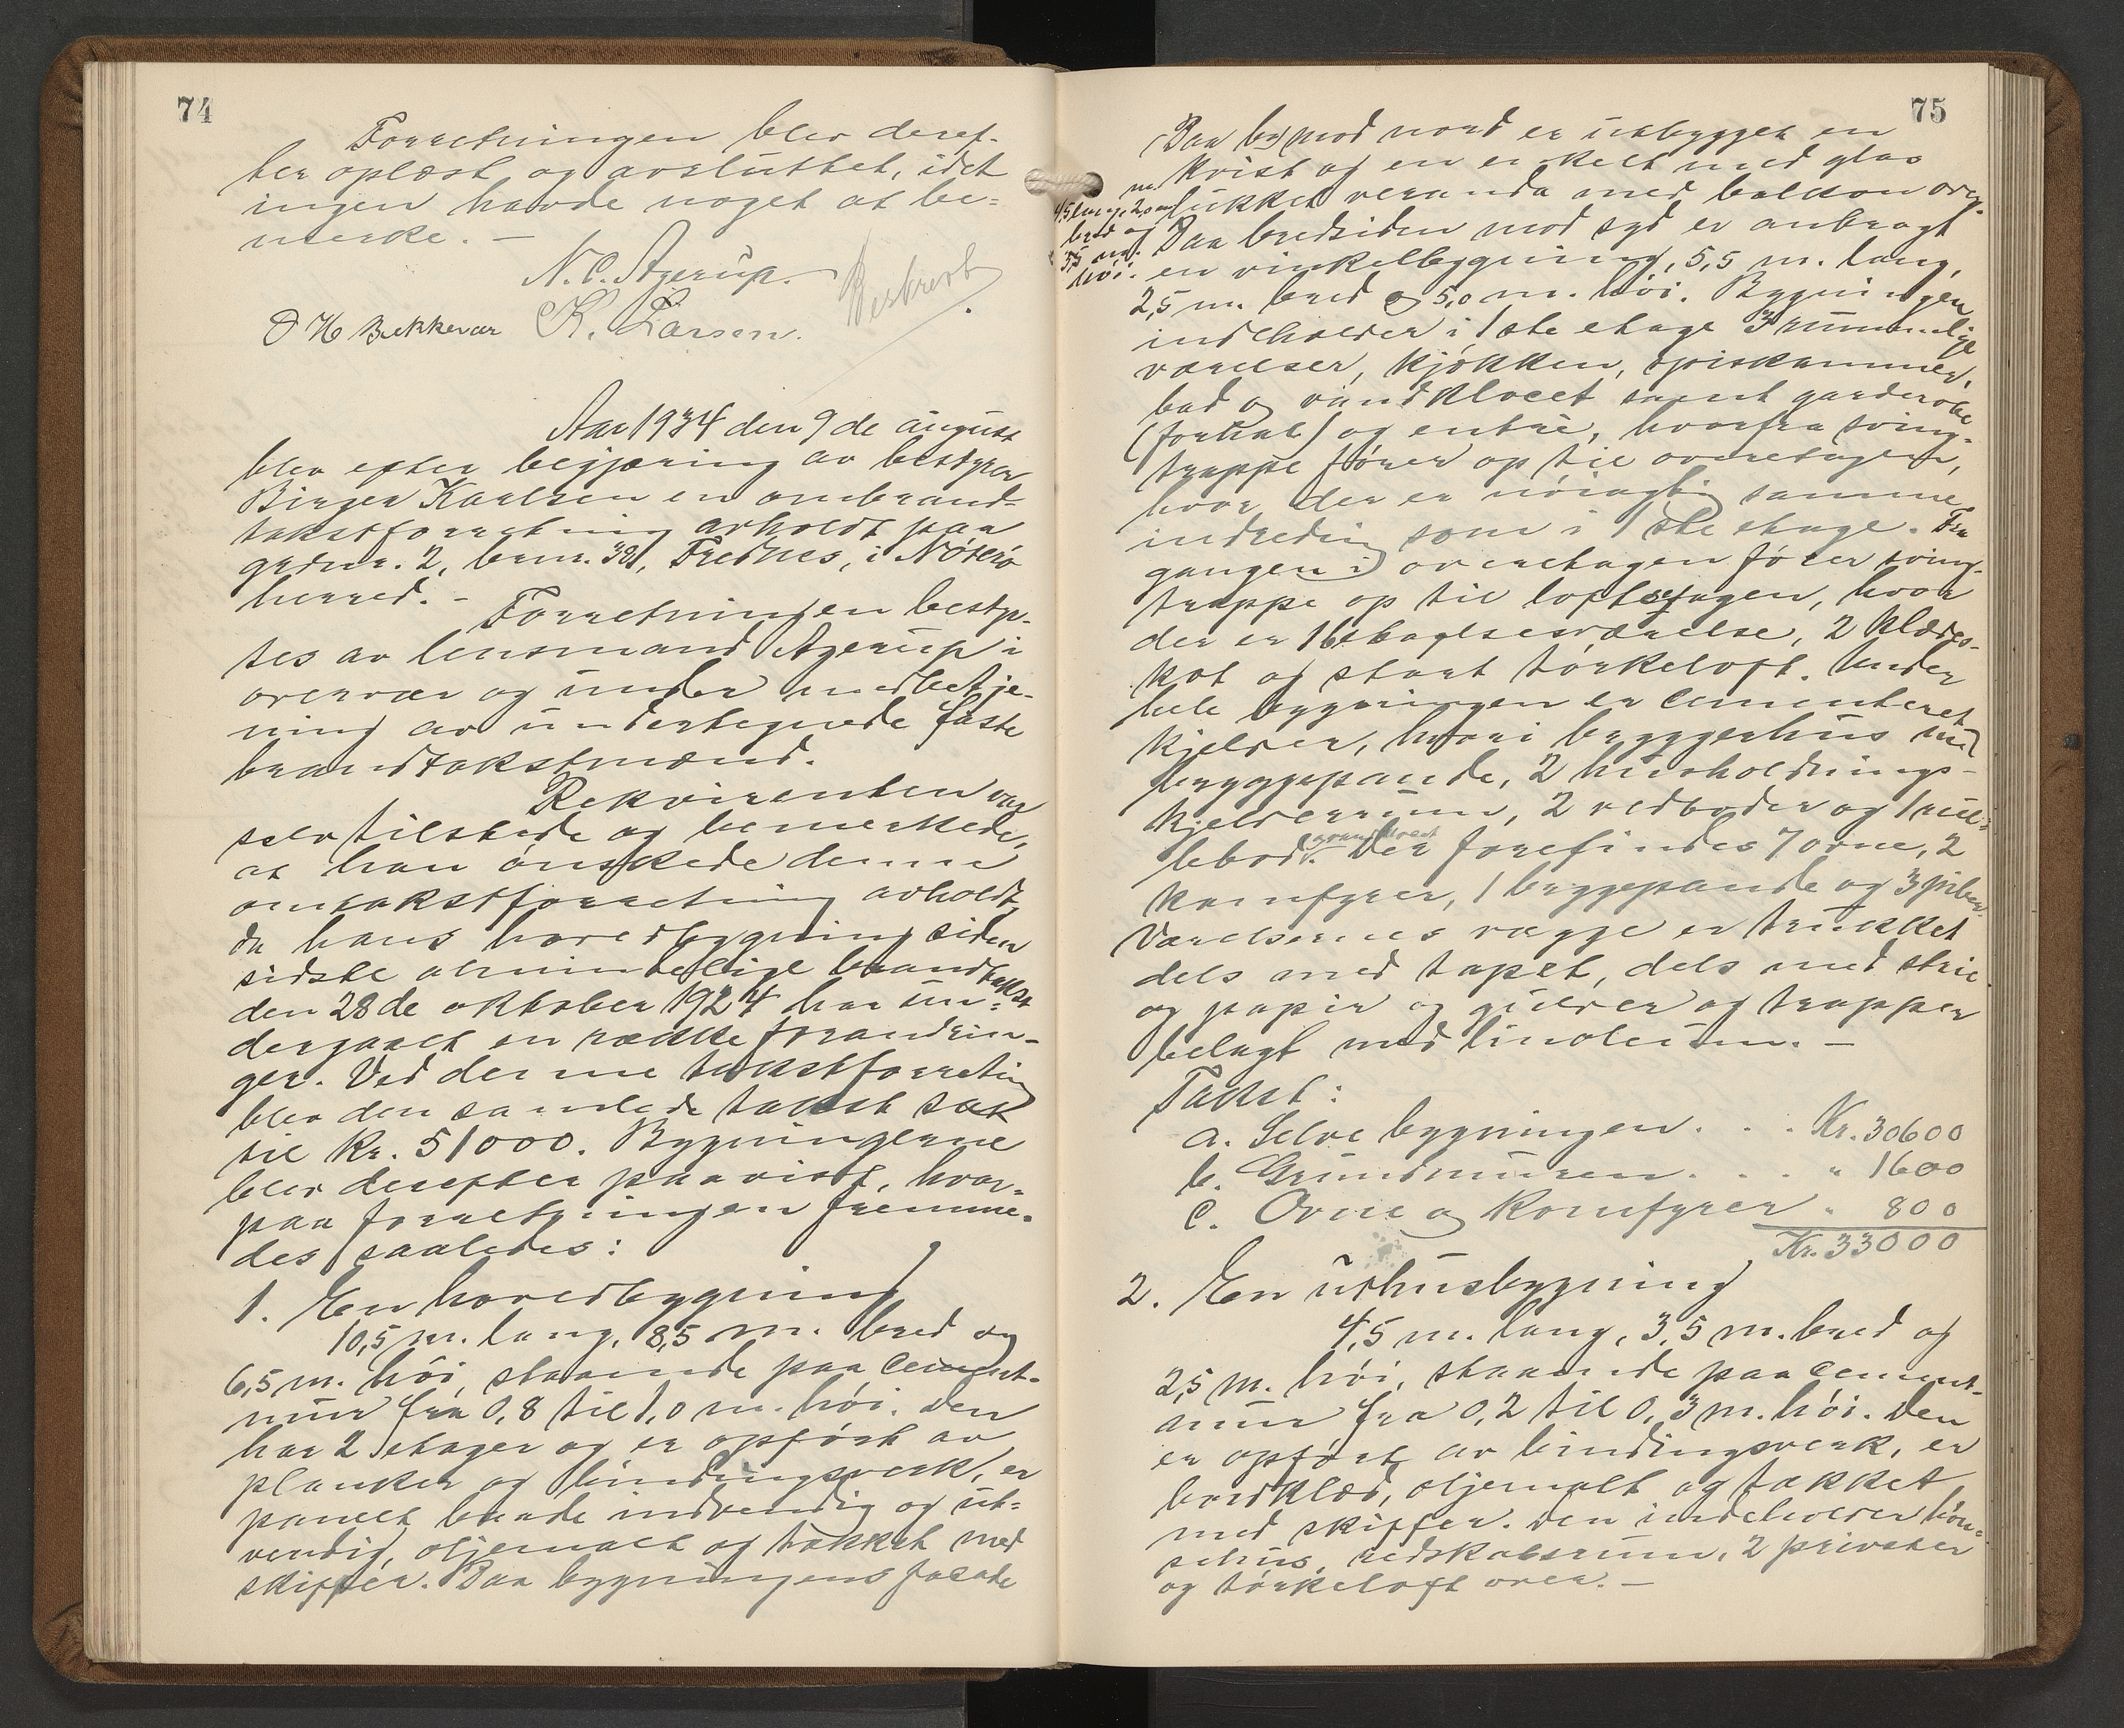 74
Forretningen blev deref-
ter oplæst og avsluttet, idet
ingen havde noget at be-
merke. —
N. C. Agerup.
Beskrevet
O H Bekkevar K. Larsen.
Aar 1934 den 9de august
blev efter begjæring av bestyrer
Birger Karlsen en ombrand-
takstforretning avholdt paa
grdnr. 2, brnr. 38, Trednes, i Nøterø
herred. —
Forretningen besty-
tes av lensmand Agerup i
overvær og under medbetje-
ning av undertegnede faste
brandtakstmænd.
Rekvirenten var
selv tilstede og bemerkede,
at han ønskede denne
omtakstforretning avholdt,
da hans hovedbygning siden
sidste almindelige brandtakst
den 28de oktober 1924 har un-
dergaaet en række forandrin-
ger. Ved denne takstforretning
blev den samlede takst sat
til kr. 51000. Bygningerne
blev derefter paavist, hvor-
paa forretningen fremme-
des saaledes:
1. En hovedbygning
10,5 m. lang, 8,5 m. bred og
6,5 m. høi, staaende paa cement-
mur fra 0,8 til 1,0 m. høi. Den
har 2 etager og er opført av
planker og bindingsverk, er
panelt baade indvendig og ut-
vendig, oljemalt og tækket med
skiffer. Paa bygningens facade
75
Paa bg mod nord er utbygget en
kvist og en enkelt med glas
lukket veranda med balkon over,
4,5 m lang, 2,0 m
bred og
3,5 m.
høi.
Paa bredsiden mod syd er anbragt
en vinkelbygning, 5,5 m. lang,
2,5 m. bred og 5,0 m. høi. Bygningen
indholder i 1ste etage 3 rummelige
værelser, kjøkken, spiskammer,
bad og vandklocet samt garderobe
(forhal) og entré, hvorfra sving-
trappe fører op til overetagen,
hvor der er nøiagtig samme
indreding som i 1ste etage. Fra
gangen i overetagen fører sving-
trappe op til loftsetagen, hvor
der er 1 beboelsesværelse, 2 klædes-
kot og stort tørkeloft. Under
hele bygningen er cementeret
kjelder, hvori bryggerhus med
bryggepande, 2 husholdnings-
kjelderrum, 2 vedboder og 1 rul-
lebod. Der forefindes 7 ovne, 2
komfyrer, 1 bryggepande og 3 piber.
Værelsernes vægge er trukket
dels med tapet, dels med strie
og papir og gulver og trapper
belagt med linoleum. —
Takst:
a. Selve bygningen . . . Kr. 30600
b. Grundmuren . . . " 1600
c. Ovne og komfyrer " 800
Kr. 33000
2. En uthusbygning
4,5 m. lang, 3,5 m. bred og
2,5 m. høi, staaende paa cement-
mur fra 0,2 til 0,3 m. høi. Den
er opført av bindingsverk, er
bordklæd, oljemalt og tækket
med skiffer. Den indeholder høn-
sehus, redskabsrum, 2 privater
og tørkeloft over. —